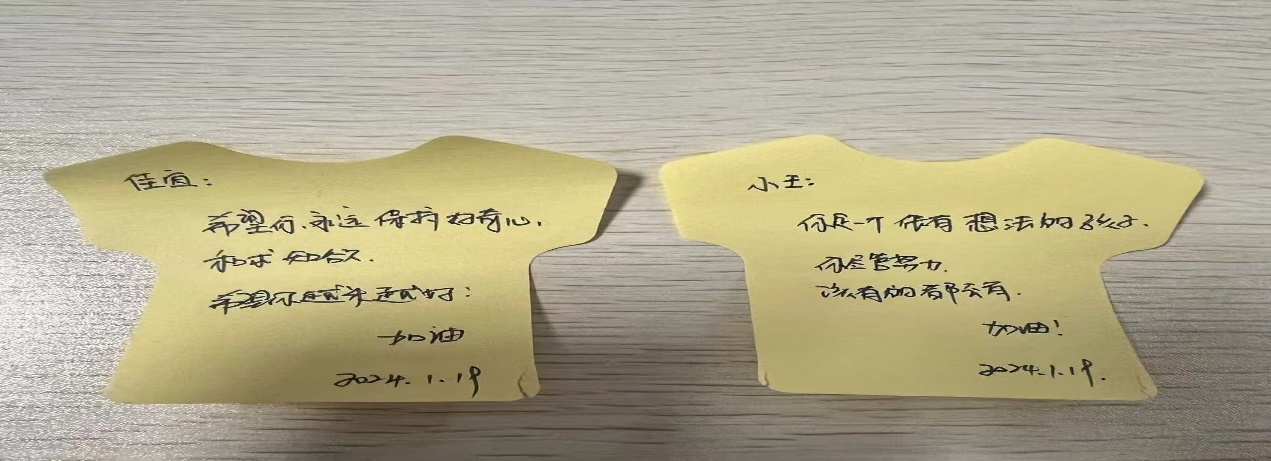 佳宜:
希望你永远保持好奇心,
和求知欲.
希望你越来越好:
加油
2024.1.19
小王:
你是一个很有想法的孩子.
你尽管努力.
该有的都会有.
加油!
2024.1.19.